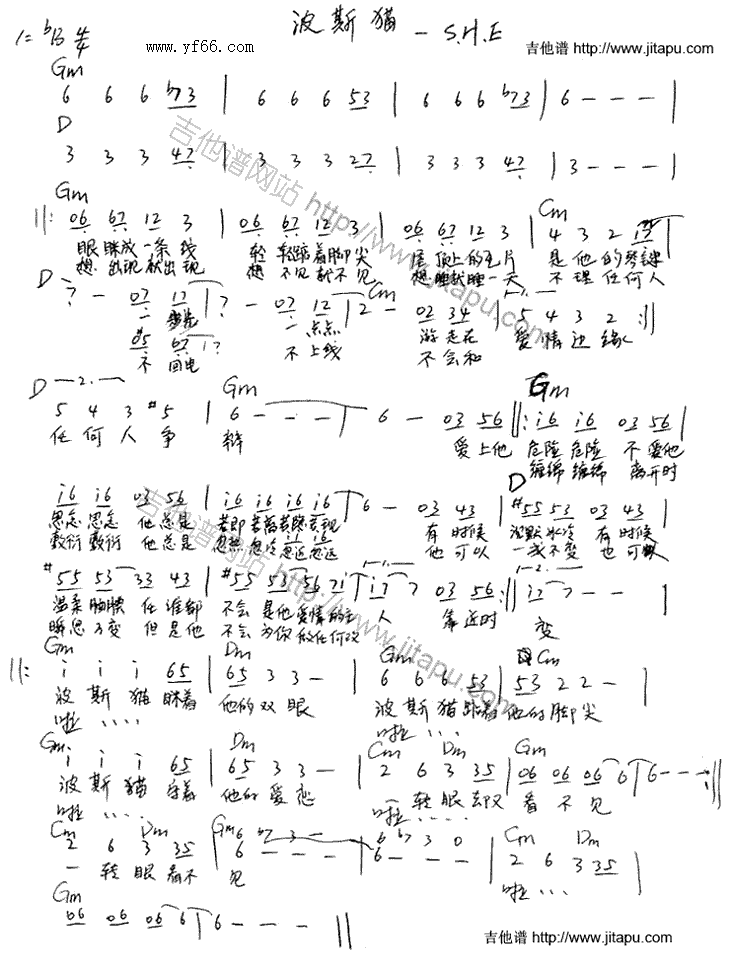 波斯猫 — S.H.E
www.yf66.com
吉他谱 http://www.jitapu.com
1=ᵇB 4/4
Gm
6 6 6 b7 3 | 6 6 6 5 3 | 6 6 6 b7 3 | 6 - - - |
D
3 3 3 4 7 | 3 3 3 2 7 | 3 3 3 4 7 | 3 - - - |
Gm Cm
||: 06 67 12 3 | 06 67 12 3 | 06 67 12 3 | 4 3 2 17
眼睐成一条线 轻轻踮着脚尖 屋顶上的瓦片 是他的琴键
想出现就出现 想不见就不见 想睡就睡一天 不理任何人
D Cm 1.
7 - 07 17 | 7 - 07 12 | 2 - 02 34 | 5 4 3 2 :||
一步步 一点点 游走在 爱情边缘
#05 67 17
不回电 不上线 不会和
D 2. Gm Gm
5 4 3 #5 | 6 - - - | 6 - 03 56 ||: i6 i6 03 56 |
任何人争 辩 爱上他 危险危险 不爱他
缠绵缠绵 离开时
D
i6 i6 03 56 | i6 i6 i6 i6 | 6 - 03 43 | #55 53 03 43 |
思念思念 他总是 若即若离若隐若现 有时候 沉默冰冷 有时候
敷衍敷衍 他总是 忽热忽冷忽近忽远 他可以 一成不变 也可以
1. 2.
#55 53 33 43 | #55 53 56 7i | i7 7 03 56 :|| i7 7 - - |
温柔腼腆 任谁都 不会是他爱情的主 人 靠近时 变
瞬息万变 但是他 不会为你做任何改
Gm Gm Cm
||: i i i 65 | 65 3 3 - | 6 6 6 53 | 53 2 2 - |
波斯猫眯着 他的双眼 波斯猫踮着 他的脚尖
啦.... 啦....
Gm Dm Cm Dm Gm
i i i 65 | 65 3 3 - | 2 6 3 35 | 06 06 06 6 | 6 - - - :||
波斯猫守着 他的爱恋 一转眼却又 看不见
啦.... 啦....
Cm Dm Gm Cm Dm
2 6 3 35 | 6 - - - | 6 - - - | 2 6 3 35 |
6 b7 3 - 6 b7 3 0
一转眼看不 见 啦...
Gm
06 06 06 6 | 6 - - - ||
吉他谱网站 http://www.jitapu.com
吉他谱网站 http://www.jitapu.com
吉他谱 http://www.jitapu.com